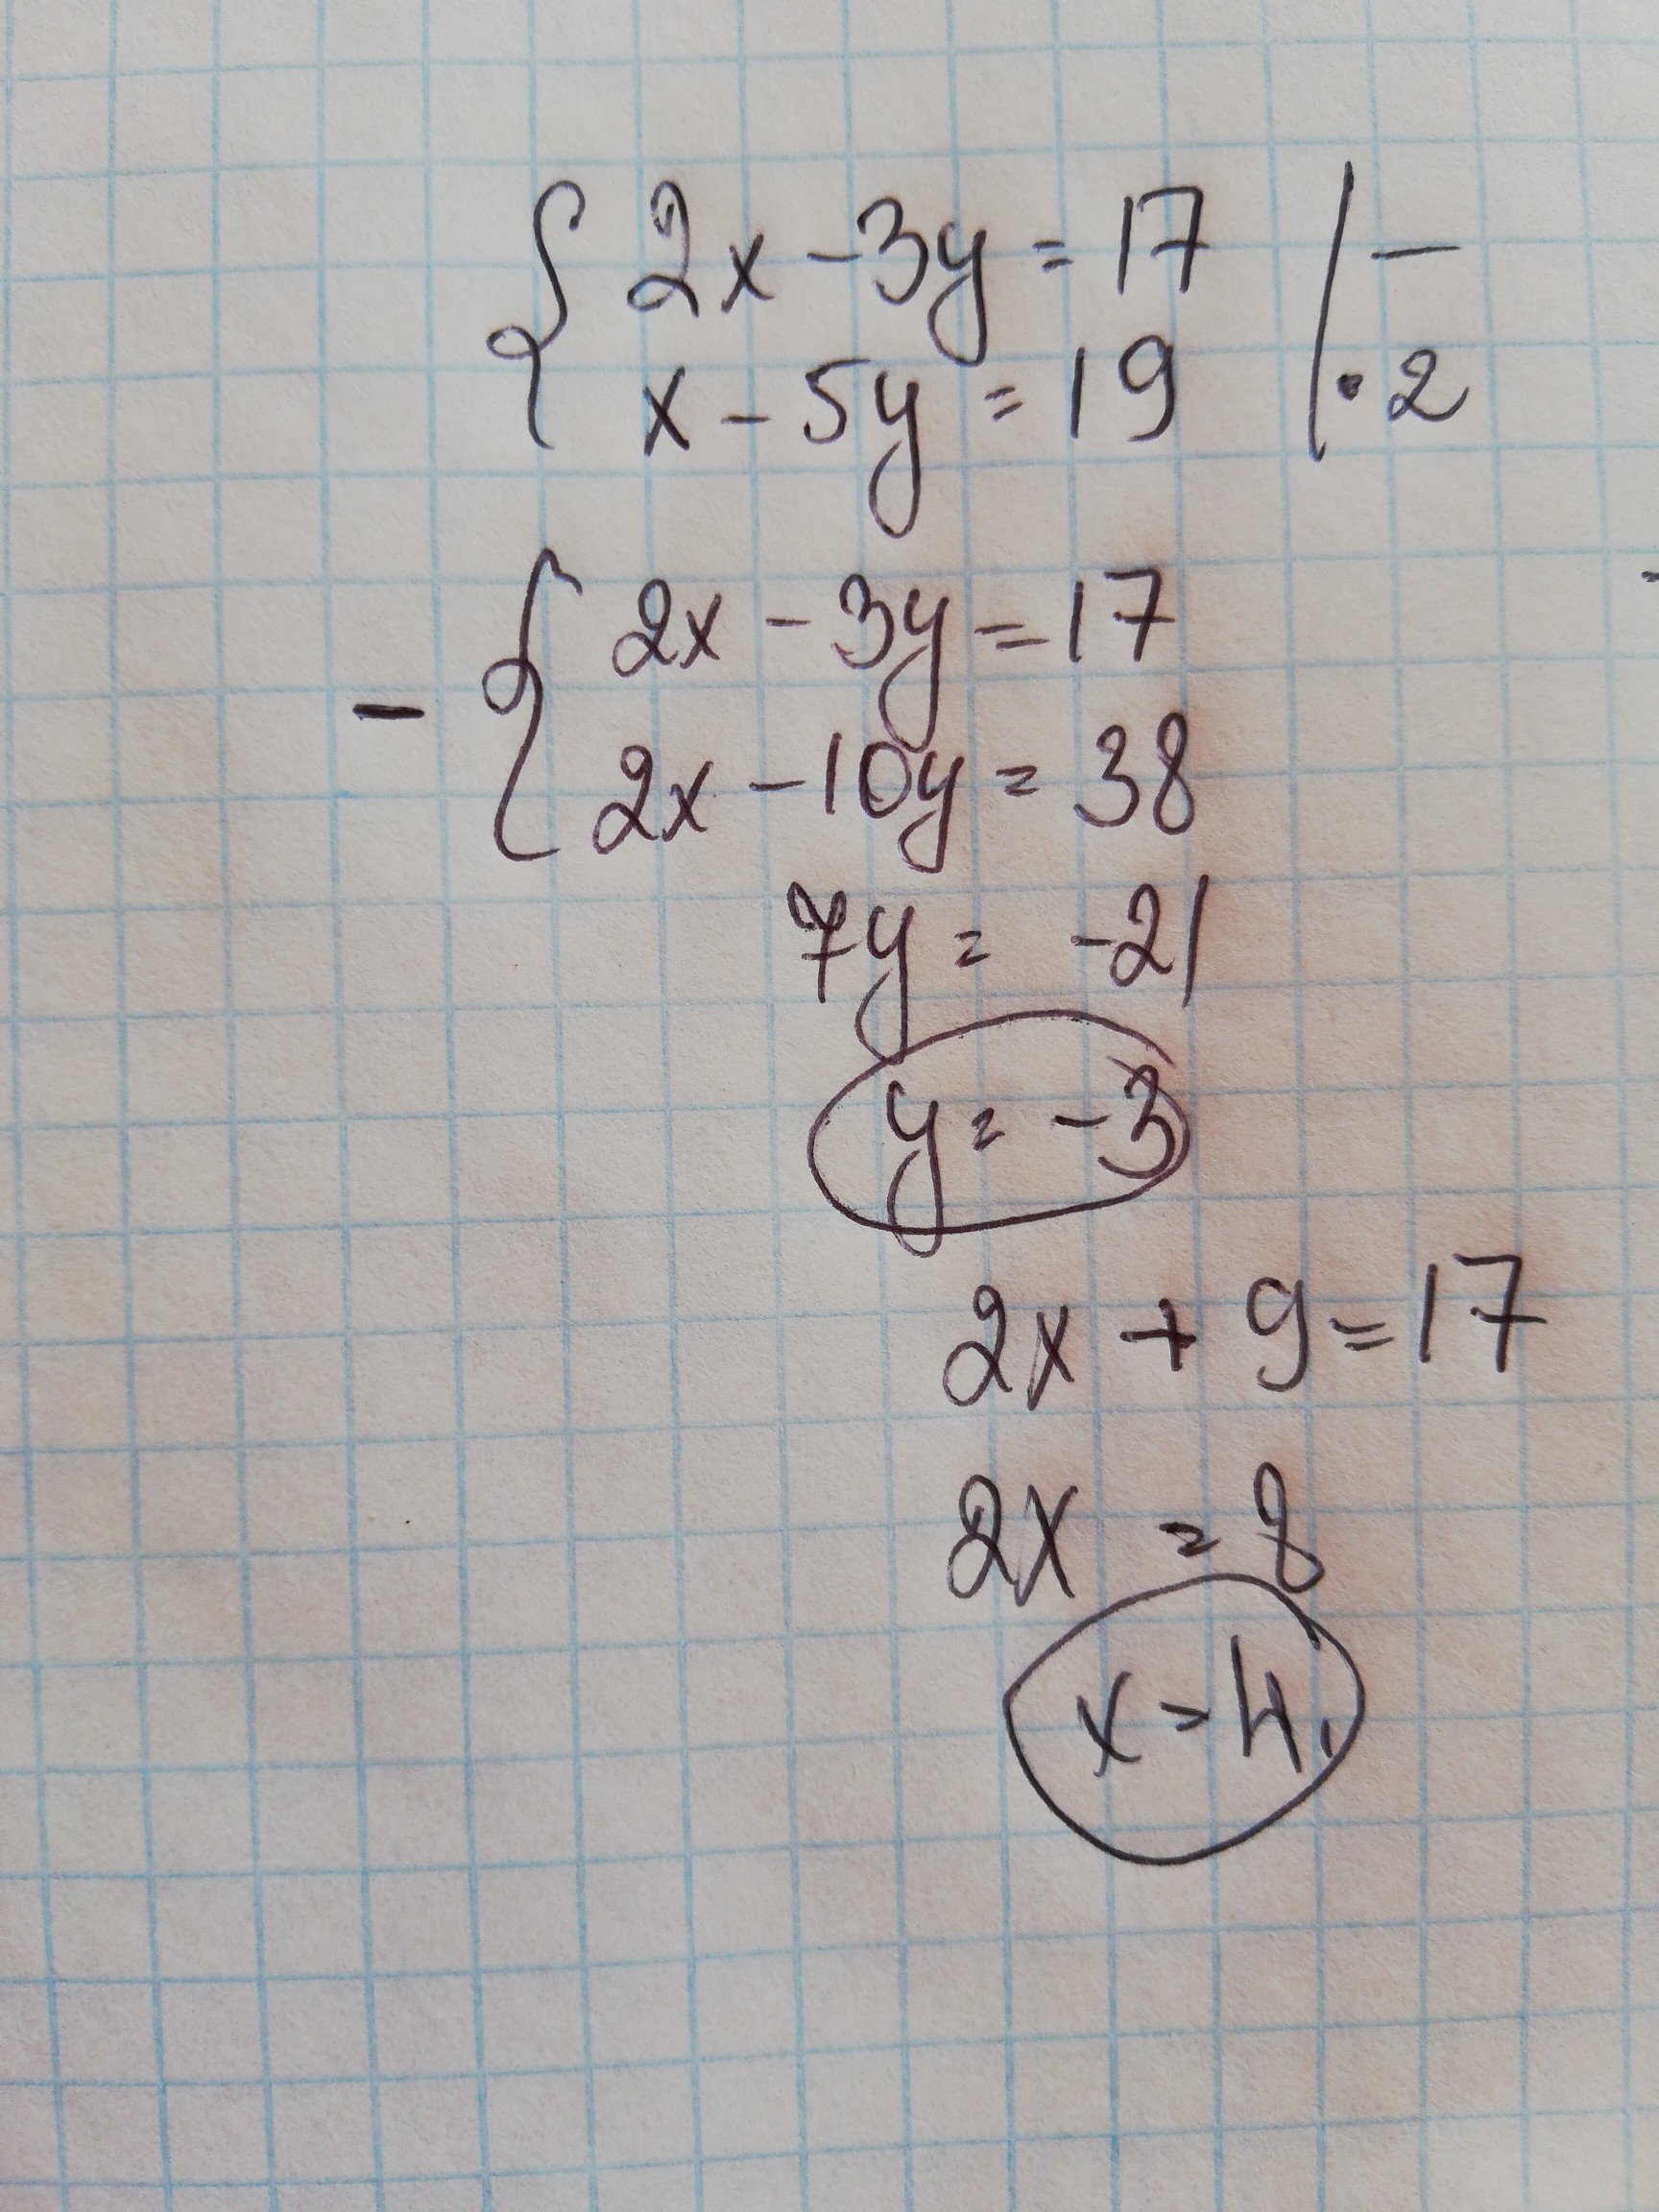 { 2x - 3y = 17 | -
x - 5y = 19 | · 2
- { 2x - 3y = 17
2x - 10y = 38
7y = -21
y = -3
2x + 9 = 17
2x = 8
x = 4.